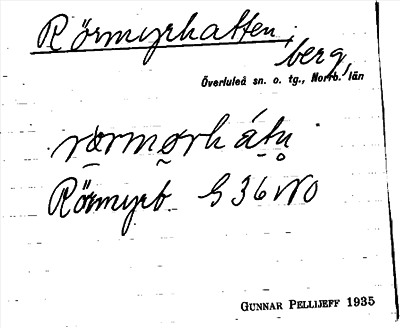 Rörmyrhatten,
berg,
Överluleå sn. o. tg., Norrb. län
Rörmyrb. G 36 NO
GUNNAR PELLIJEFF 1935